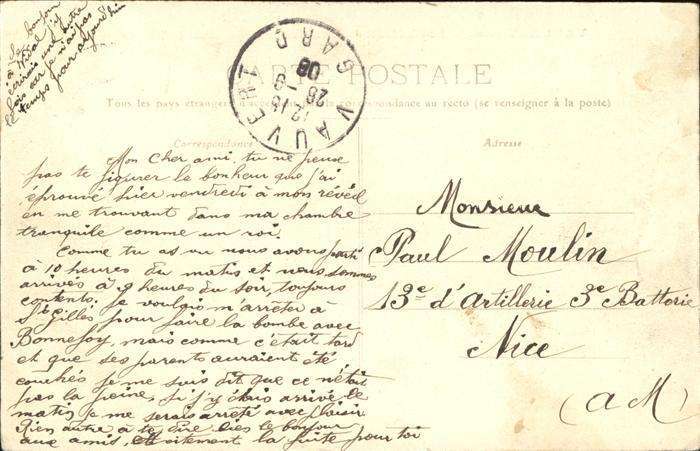 Le bonjour
à Vidal j'y
écrirais une autre
fois car je n'ai pas
le temps pour aujourd'hui
CARTE POSTALE
Tous les pays étrangers n'acceptent pas la correspondance au recto (se renseigner à la poste)
VAUVERT
12-15
28 -9
08
GARD
Correspondance
Adresse
Mon cher ami, tu ne peux
pas te figurer le bonheur que j'ai
éprouvé hier vendredi à mon réveil
en me trouvant dans ma chambre
tranquile comme un roi.
Comme tu as vu nous avons parti
à 10 heures du matin et nous sommes
arrivés à 9 heures du soir, toujours
contents. Je voulais m'arrêter à
St Gilles pour faire la bombe avec
Bonnefoy, mais comme c'était tard
et que ses parents auraient été
couchés je me suis dit que ce n'était
pas la peine, si j'y étais arrivé le
matin je me serais arrêté avec plaisir
Rien autre à te dire bies le bonjour
aux amis, the la suite pour toi
Monsieur
Paul Moulin
13e d'artillerie 3e Batterie
Nice
(A M)